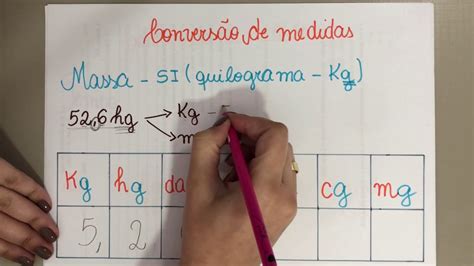 Conversão de medidas
Massa - SI (quilograma - Kg)
52,6 hg Kg -
m
Kg hg da cg mg
5, 2